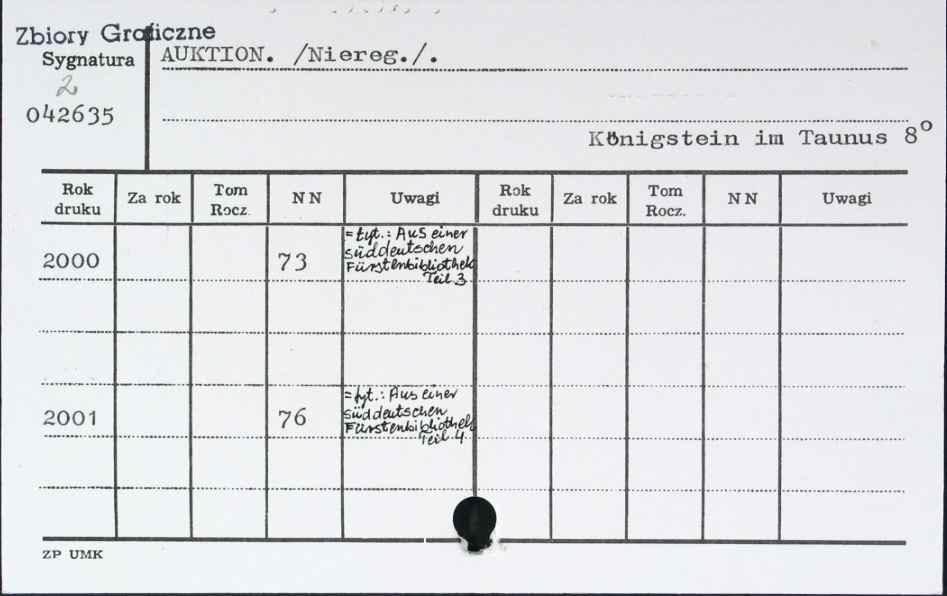 Zbiory Graficzne
Sygnatura
2
042635
AUKTION. /Niereg./.
Königstein im Taunus 8°
Rok druku Za rok Tom Rocz. NN Uwagi Rok druku Za rok Tom Rocz. NN Uwagi
2000 73 =tyt.: Aus einer
süddeutschen
Fürstenbibliothek
Teil 3
2001 76 =tyt.: Aus einer
süddeutschen
Fürstenbibliothek
Teil 4
ZP UMK